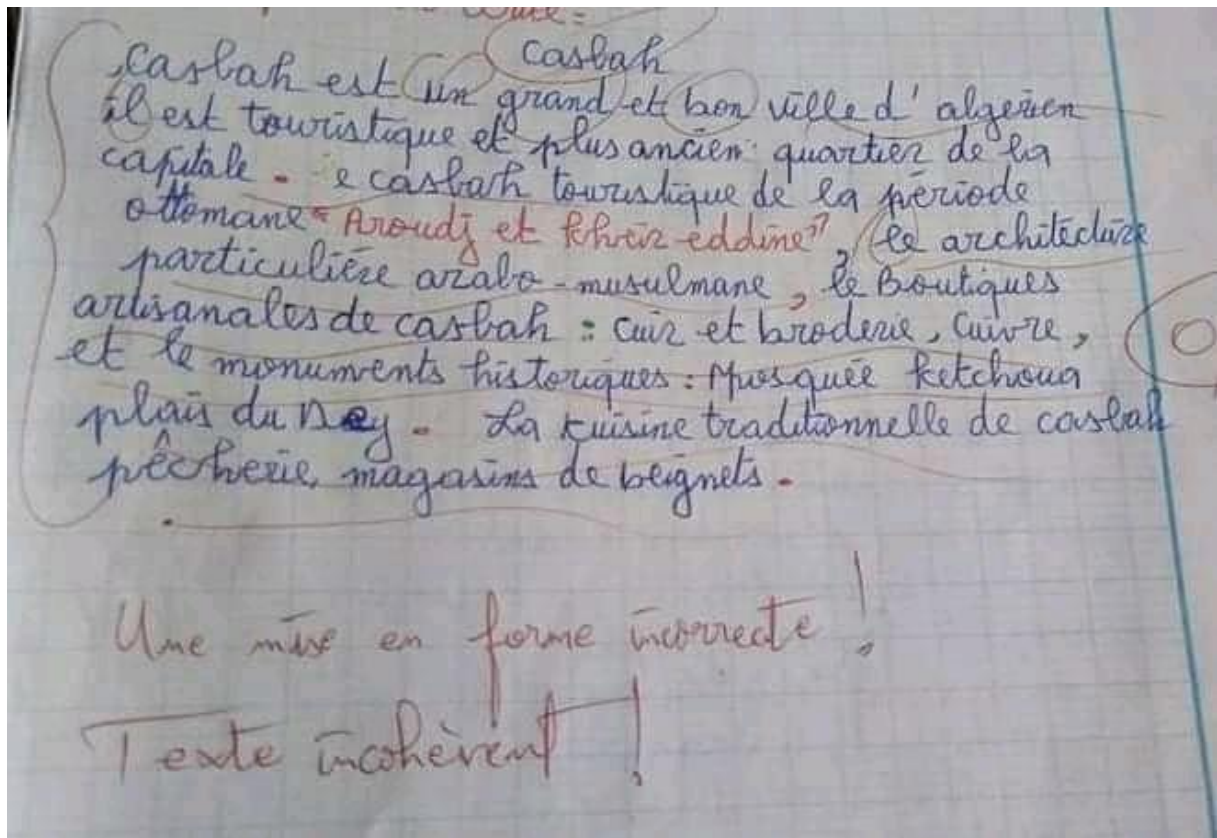 Casbah
Casbah est un grand et bon ville d'algerien
il est touristique et plus ancien quartier de la
capitale. e casbah touristique de la période
ottomane "Aroudj et kheir-eddine", le architecture
particuliére arabo-musulmane, le Boutiques
artisanales de casbah : cuir et broderie, cuivre,
et le monuments historiques : Mosquée ketchoua
plais du Dey. La cuisine traditionnelle de casbah
pêcherie, magasins de beignets.
Une mise en forme incorrecte !
Texte incohèrent !